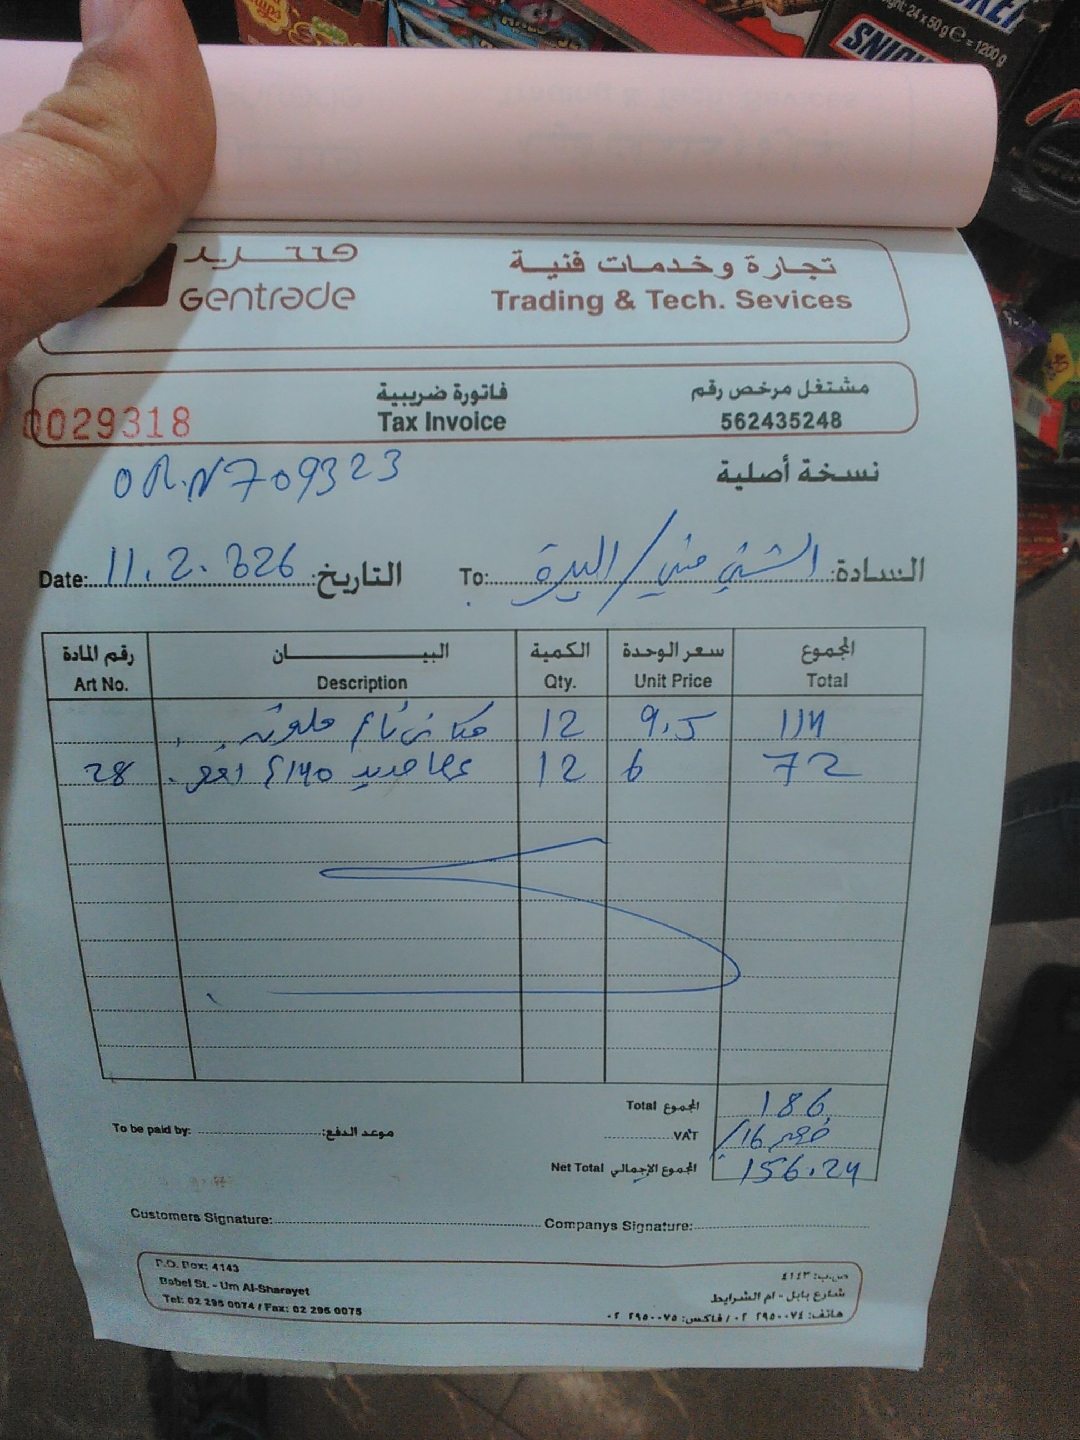 SNICKERS
ght: 24 x 50 g e = 1200 g
Gentrade
تجارة وخدمات فنية
Trading & Tech. Sevices
0029318
فاتورة ضريبية
Tax Invoice
مشتغل مرخص رقم
562435248
OR.N709323
نسخة أصلية
Date: 11.2.2026 التاريخ:
To: الشني ميني / البيرة السادة:
رقم المادة البيـــان الكمية سعر الوحدة المجموع
Art No. Description Qty. Unit Price Total
ملونة 12 9.5 114
28 حديد 140 12 6 72
Total المجموع 186
VAT خصم 16/
To be paid by: موعد الدفع:
Net Total المجموع الإجمالي 156.24
Customers Signature: Companys Signature:
P.O. Box: 4143
Babel St. - Um Al-Sharayet
Tel: 02 295 0074 / Fax: 02 295 0075
ص.ب: ٤١٤٣
شارع بابل - ام الشرايط
هاتف: ٢٩٥٠٠٧٤ ٠٢ / فاكس: ٢٩٥٠٠٧٥ ٠٢